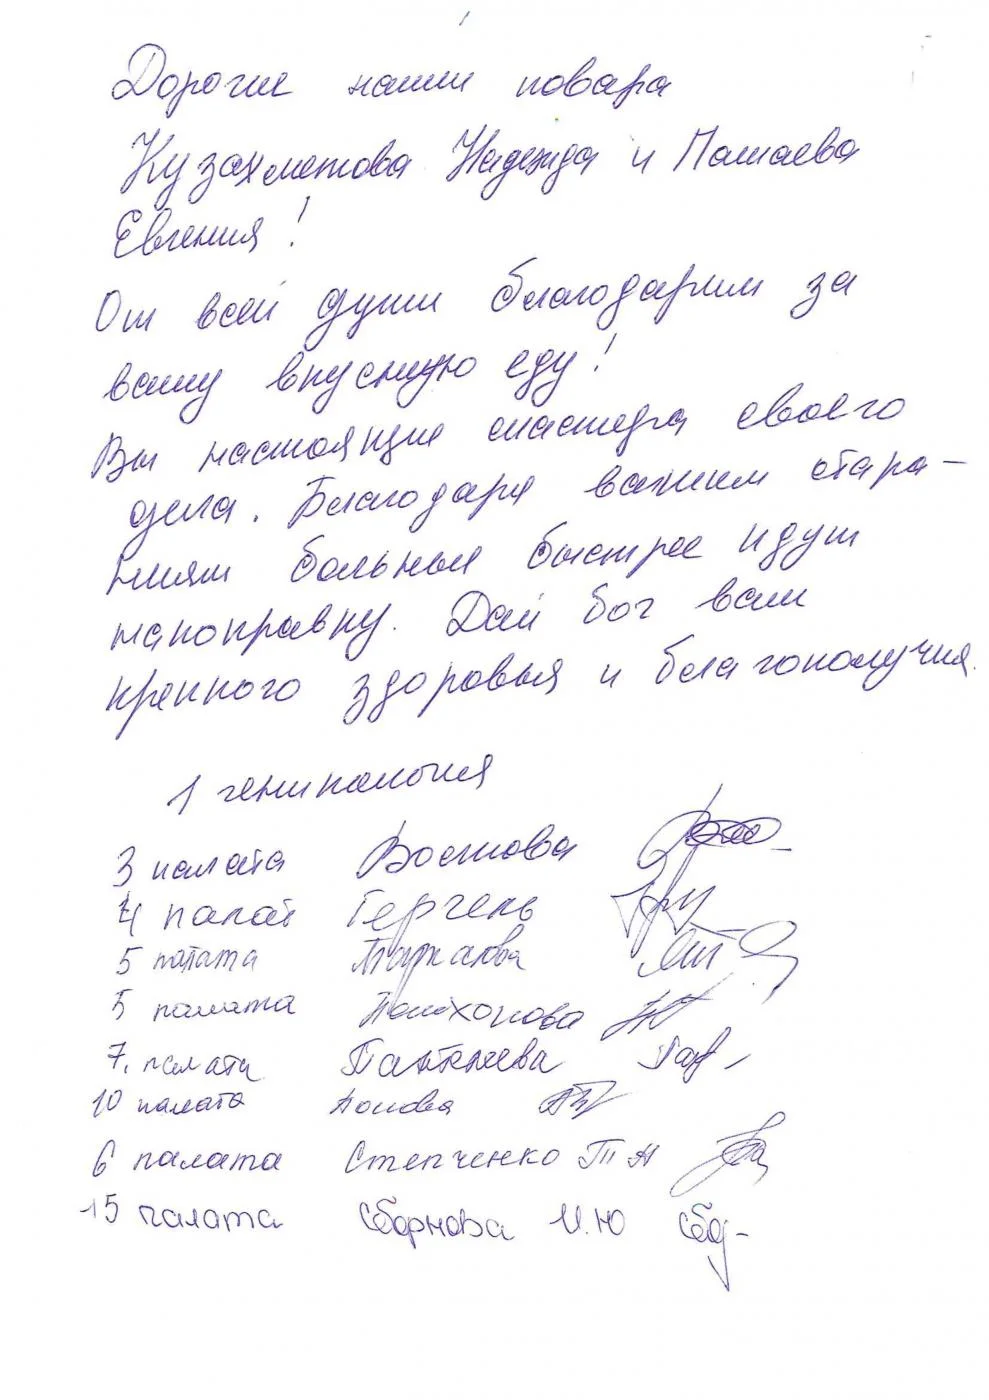 Дорогие наши повара
Кузахметова Надежда и Пашаева
Евгения!
От всей души благодарим за
вашу вкусную еду!
Вы настоящие мастера своего
дела. Благодаря вашим стара-
ниям больные быстрее идут
на поправку. Дай бог вам
крепкого здоровья и благополучия.
1 геникалогия
3 палата
4 палат Гергель
5 палата
5 палата
7. палата Пантелеева
10 палата Попова
6 палата Степченко Т Н
15 палата Сборнова И.Ю